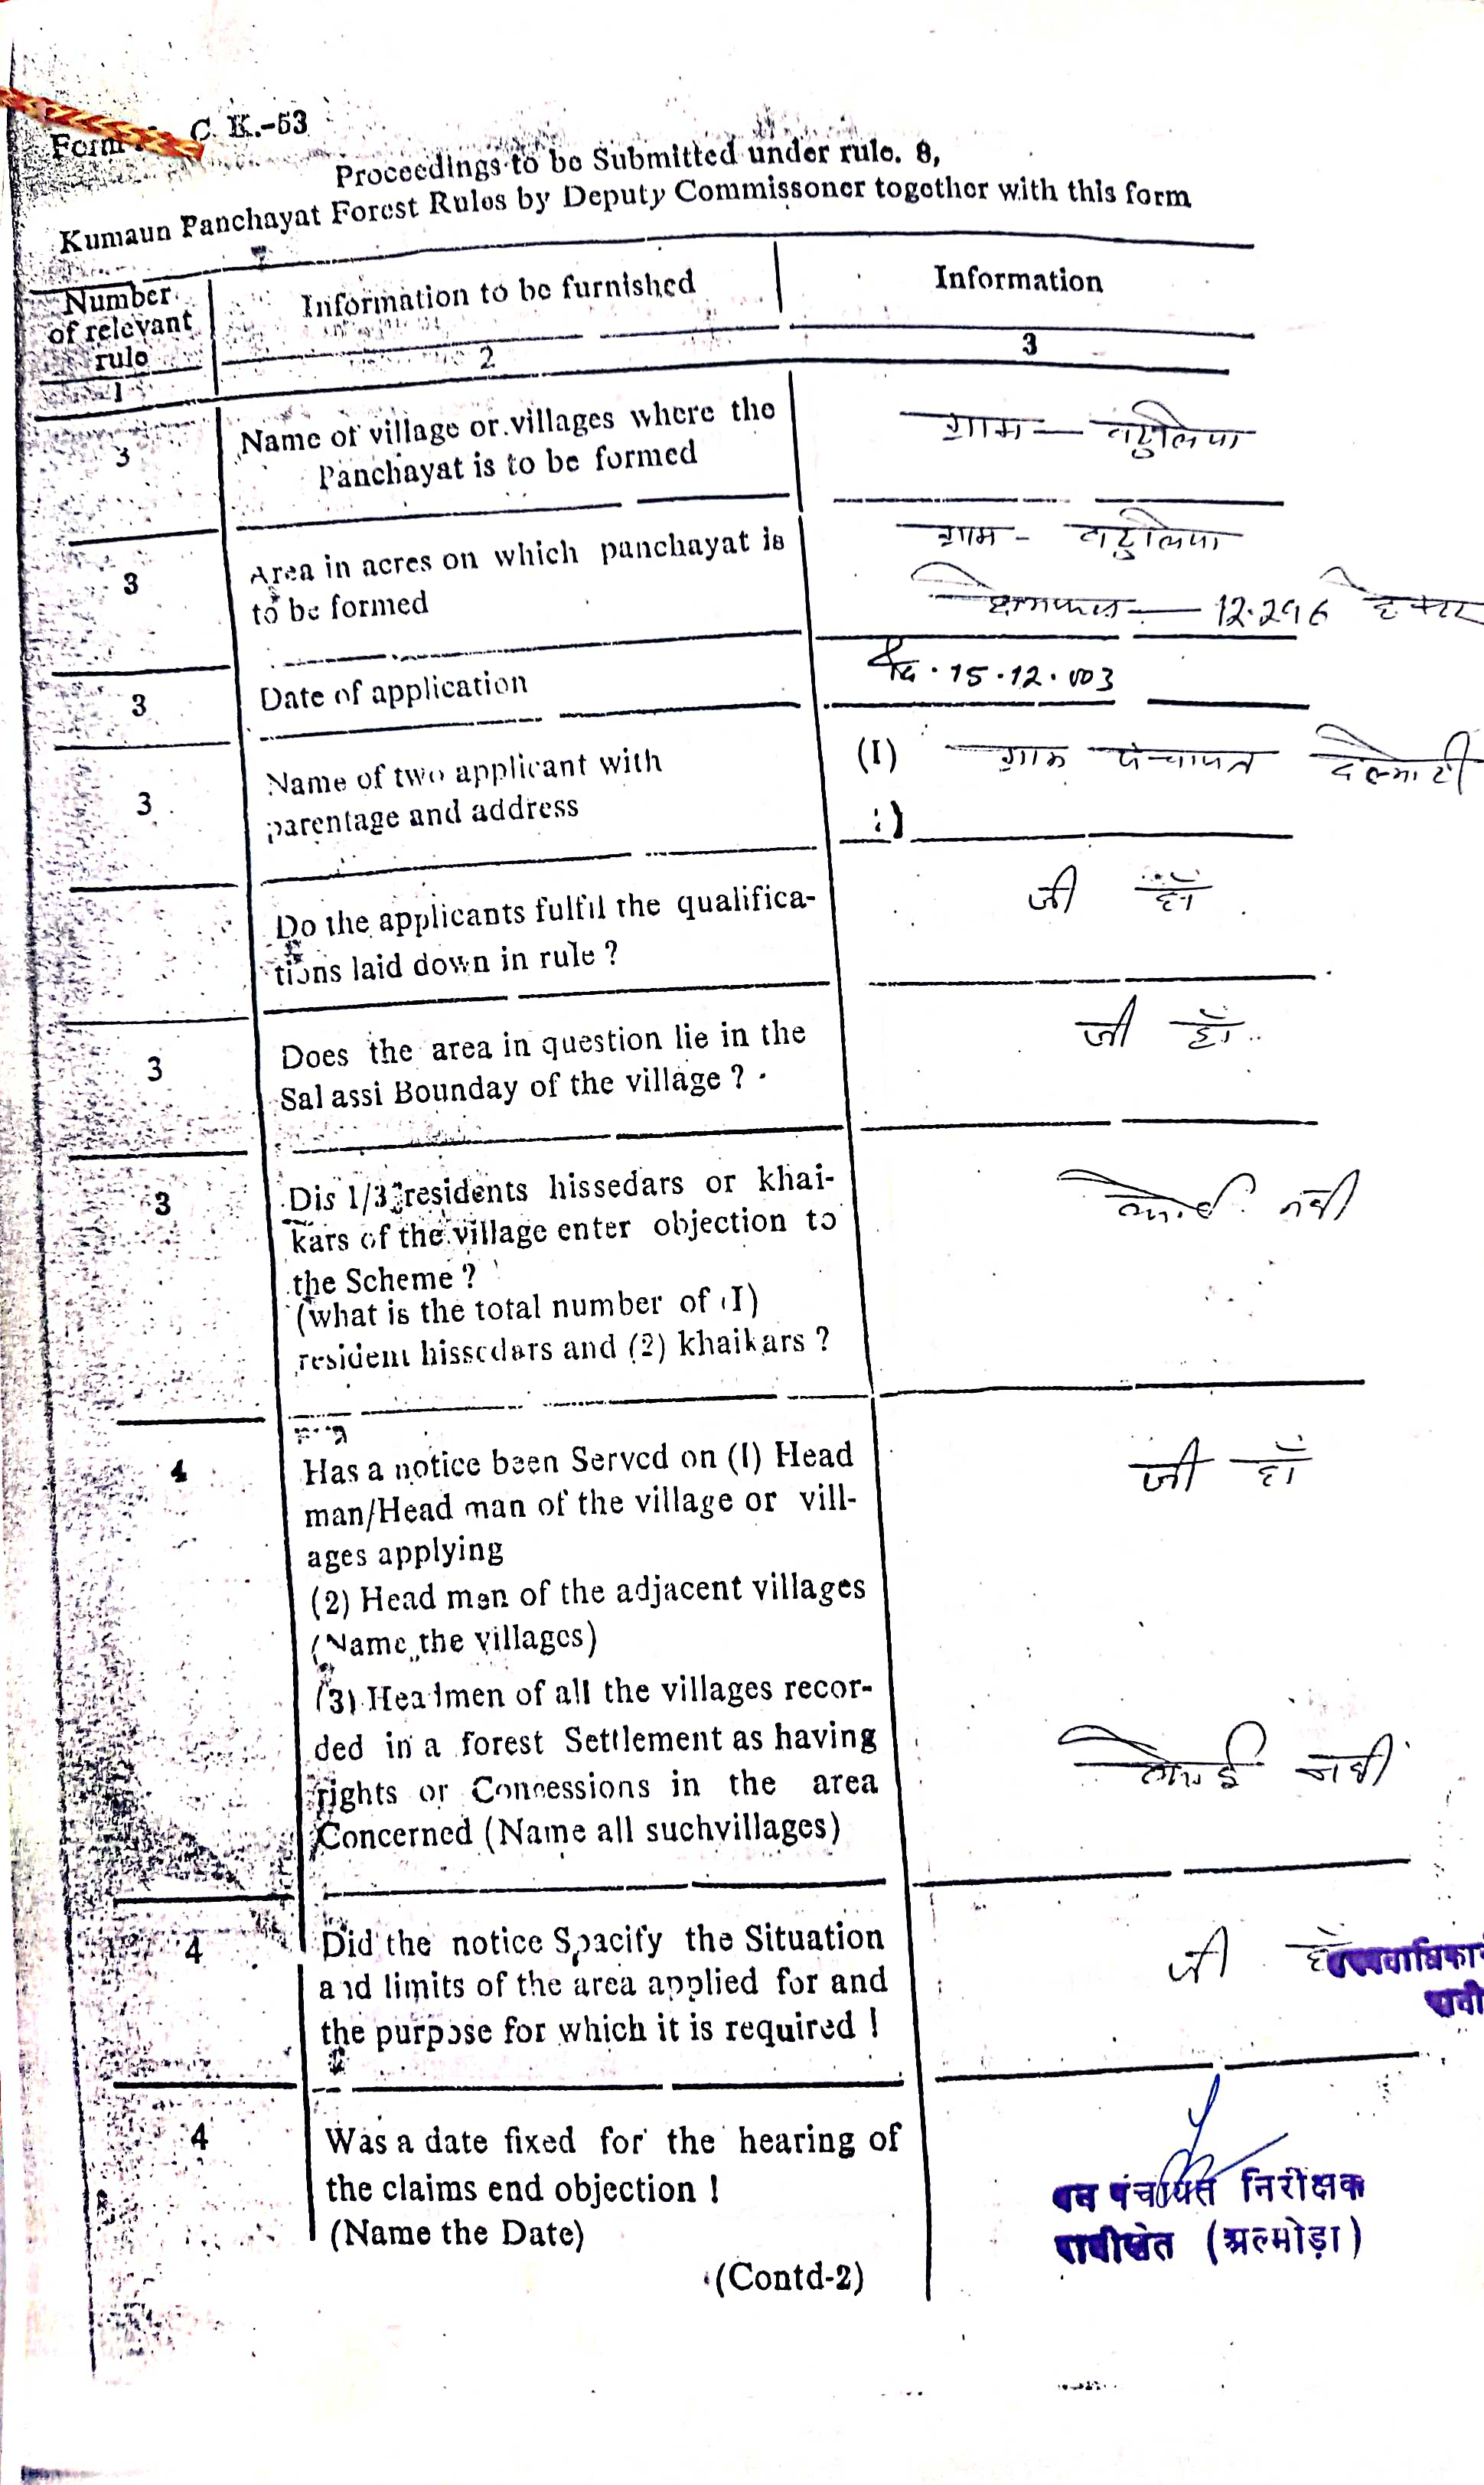 Form C. K.-53
Proceedings to be Submitted under rule. 8,
Kumaun Panchayat Forest Rules by Deputy Commissoner together with this form
Number of relevant rule
Information to be furnished
Information
1
2
3
3
Name of village or villages where the
Panchayat is to be formed
ग्राम —
3
Area in acres on which panchayat is
to be formed
ग्राम -
क्षेत्रफल — 12.296 हेक्टर
3
Date of application
15.12.003
3
Name of two applicant with
parentage and address
(I) ग्राम पंचायत
Do the applicants fulfil the qualifica-
tions laid down in rule ?
जी हाँ
3
Does the area in question lie in the
Sal assi Bounday of the village ?
जी हाँ
3
Dis 1/3 residents hissedars or khai-
kars of the village enter objection to
the Scheme ?
(what is the total number of (I)
resident hissedars and (2) khaikars ?
कोई नहीं
4
Has a notice been Served on (I) Head
man/Head man of the village or vill-
ages applying
(2) Head men of the adjacent villages
(Name the villages)
(3) Headmen of all the villages recor-
ded in a forest Settlement as having
rights or Concessions in the area
Concerned (Name all suchvillages)
जी हाँ
कोई नहीं
4
Did the notice Spacify the Situation
and limits of the area applied for and
the purpose for which it is required !
जी हाँ
4
Was a date fixed for the hearing of
the claims end objection !
(Name the Date)
(Contd-2)
वन पंचायत निरीक्षक
रानीखेत (अल्मोड़ा)